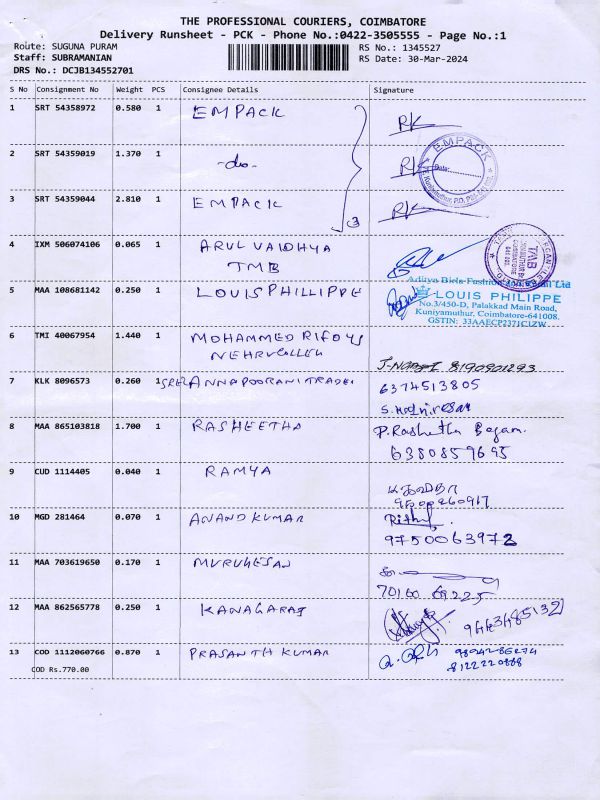 THE PROFESSIONAL COURIERS, COIMBATORE
Delivery Runsheet - PCK - Phone No.:0422-3505555 - Page No.:1
Route: SUGUNA PURAM
RS No.: 1345527
Staff: SUBRAMANIAN
RS Date: 30-Mar-2024
DRS No.: DCJB134552701
S No Consignment No Weight PCS Consignee Details Signature
1 SRT 54358972 0.580 1 EMPACK RK
2 SRT 54359019 1.370 1 -do- RK
EMPACK
Date:
3 SRT 54359044 2.810 1 EMPACK 3 RK
4 IXM 506074106 0.065 1 ARUL VAIDHYA
TMB
TAB
5 MAA 108681142 0.250 1 LOUIS PHILLIPPE
Aditya Birla Fashion and Retail Ltd
LOUIS PHILIPPE
No.3/450-D, Palakkad Main Road,
Kuniyamuthur, Coimbatore-641008.
GSTIN: 33AAECP2371C1ZW
6 TMI 40067954 1.440 1 MOHAMMED
8190901293
7 KLK 8096573 0.260 1 SREE ANNAPOORANI TRADE
6374513805
8 MAA 865103818 1.700 1 RASHEETHA P. Rashetha Begam.
6380859695
9 CUD 1114405 0.040 1 RAMYA
10 MGD 281464 0.070 1 ANAND KUMAR
9750063972
11 MAA 703619650 0.170 1 MURUGESAN
70100 69225
12 MAA 862565778 0.250 1 KANAGARAJ
13 COD 1112060766 0.870 1 PRASANTH KUMAR
COD Rs.770.00
8122220868